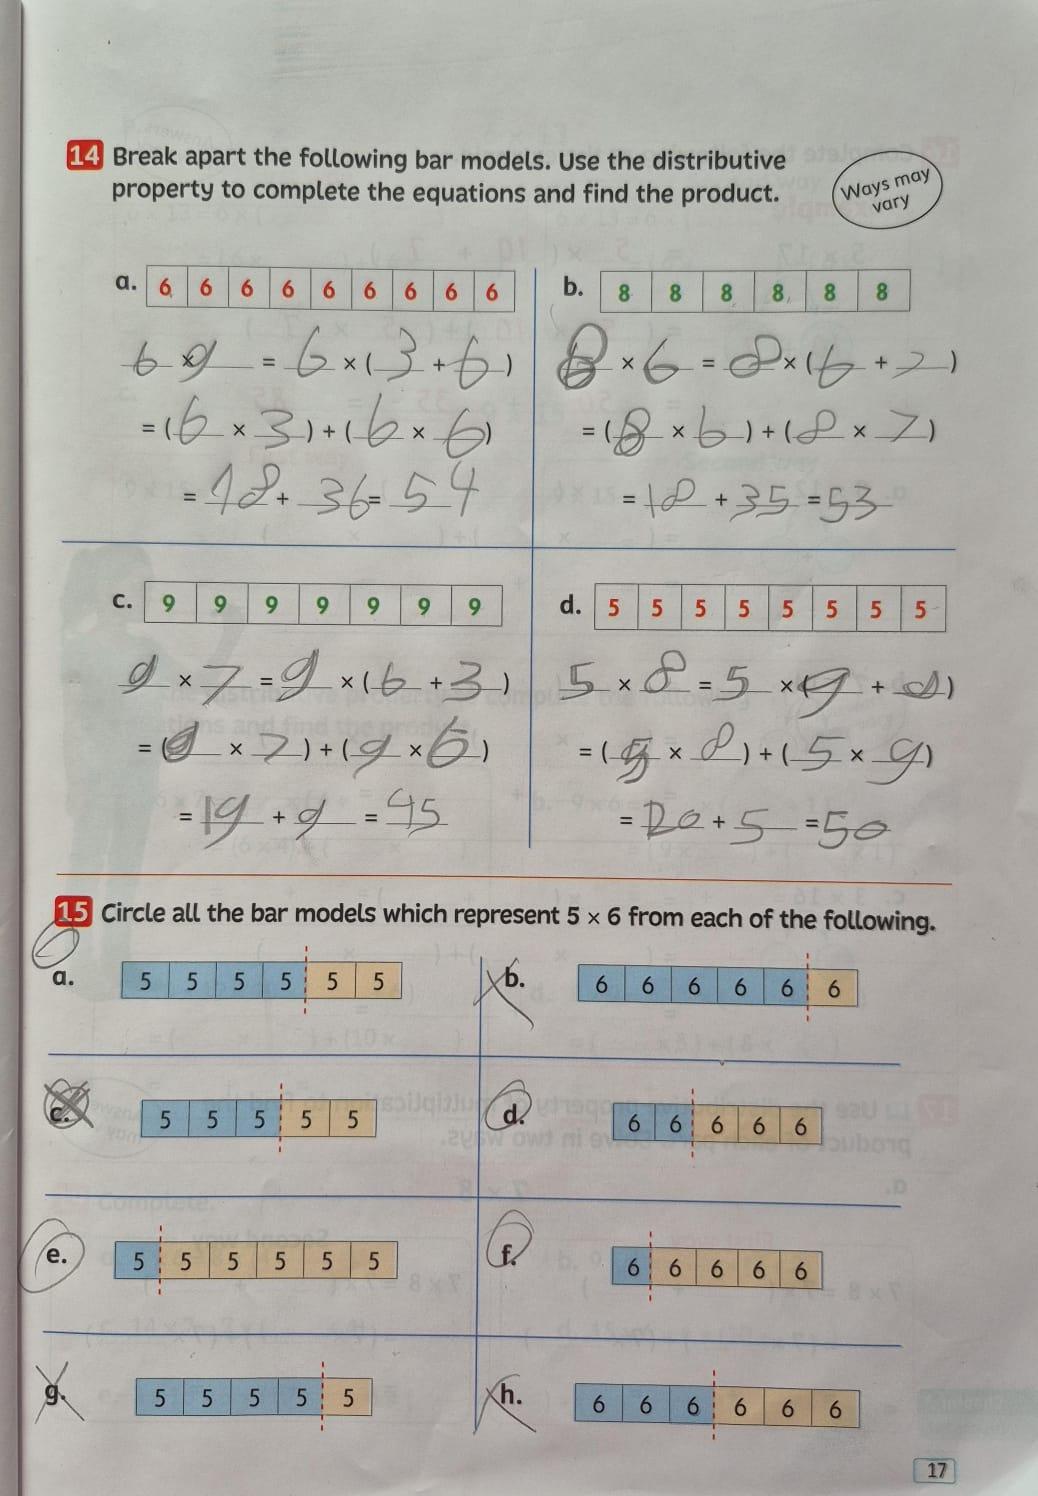 14 Break apart the following bar models. Use the distributive
property to complete the equations and find the product.
Ways may
vary
a. 6 6 6 6 6 6 6 6 6
6 × 9 = 6 × ( 3 + 6 )
= ( 6 × 3 ) + ( 6 × 6 )
= 18 + 36 = 54
b. 8 8 8 8 8 8
8 × 6 = 8 × ( 6 + 7 )
= ( 8 × 6 ) + ( 8 × 7 )
= 18 + 35 = 53
c. 9 9 9 9 9 9 9
9 × 7 = 9 × ( 6 + 3 )
= ( 9 × 7 ) + ( 9 × 6 )
= 19 + 9 = 45
d. 5 5 5 5 5 5 5 5
5 × 8 = 5 × ( 9 + )
= ( 5 × 8 ) + ( 5 × 9 )
= 20 + 5 = 50
15 Circle all the bar models which represent 5 × 6 from each of the following.
a. 5 5 5 5 5 5
b. 6 6 6 6 6 6
c. 5 5 5 5 5
d. 6 6 6 6 6
e. 5 5 5 5 5 5
f. 6 6 6 6 6
g. 5 5 5 5 5
h. 6 6 6 6 6 6
17